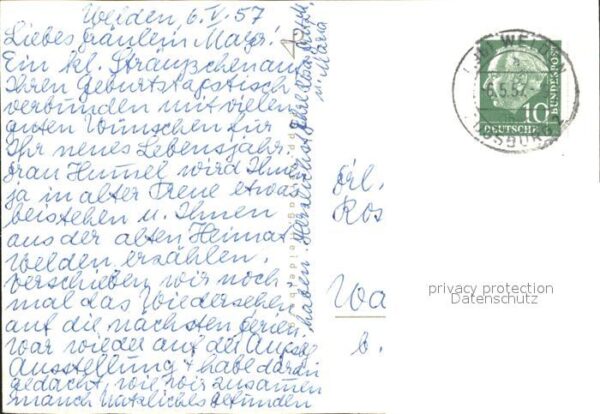 Welden 6.V.57
Liebes Fräulein Mayr!
Ein kl. Sträußchen auf
Ihren Geburtstagstisch
verbunden mit vielen
guten Wünschen für
Ihr neues Lebensjahr.
Frau Hummel wird Ihnen
ja in alter Treue etwas
beistehen u. Ihnen
aus der alten Heimat
Welden erzählen.
Verschieben wir noch
mal das Wiedersehen
auf die nächsten Ferien.
War wieder auf der
Ausstellung + habe daran
gedacht, wie wir zusammen
manch Nützliches gefunden
haben. Herzlichst Ihre
u. Maria
WELDEN
6.5.57
AUGSBURG
10
DEUTSCHE
BUNDESPOST
Frl.
Ros
Wa
b.
privacy protection
Datenschutz